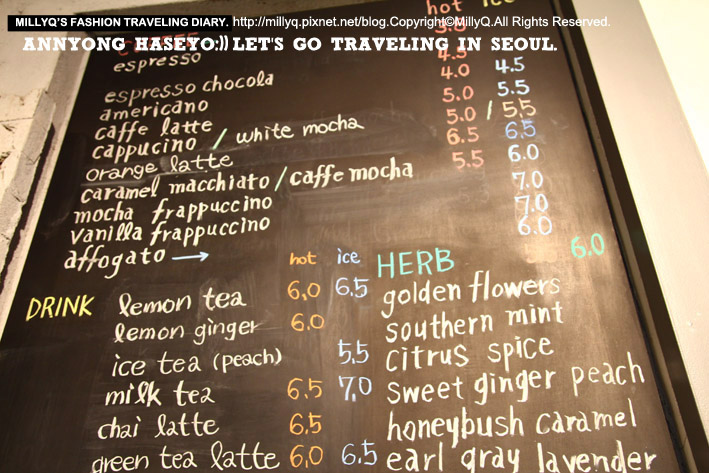 MILLYQ'S FASHION TRAVELING DIARY. http://millyq.pixnet.net/blog.Copyright©MillyQ.All Rights Reserved.
ANNYONG HASEYO:)) LET'S GO TRAVELING IN SEOUL.
hot
espresso
espresso chocola 4.0 4.5
americano 5.5
caffe latte 5.0 5.5
cappucino / white mocha 5.0 /
orange latte 6.5 6.5
caramel macchiato / caffe mocha 5.5 6.0
mocha frappuccino 7.0
vanilla frappuccino 7.0
affogato → 6.0
DRINK hot ice
lemon tea 6.0 6.5
lemon ginger 6.0
ice tea (peach) 5.5
milk tea 6.5 7.0
chai latte 6.5
green tea latte 6.0 6.5
HERB 6.0
golden flowers
southern mint
citrus spice
sweet ginger peach
honeybush caramel
earl gray lavender